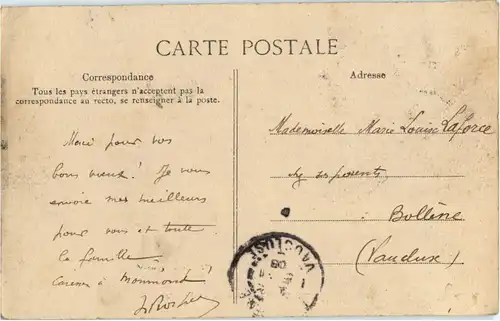 CARTE POSTALE
Correspondance
Tous les pays étrangers n'acceptent pas la
correspondance au recto, se renseigner à la poste.
Adresse
Merci pour vos
bons vœux! Je vous
envoie mes meilleurs
pour vous et toute
la famille
à
Mademoiselle Marie Louise Laforce
chez ses parents
Bollène
(Vaucluse)
VAUCLUSE